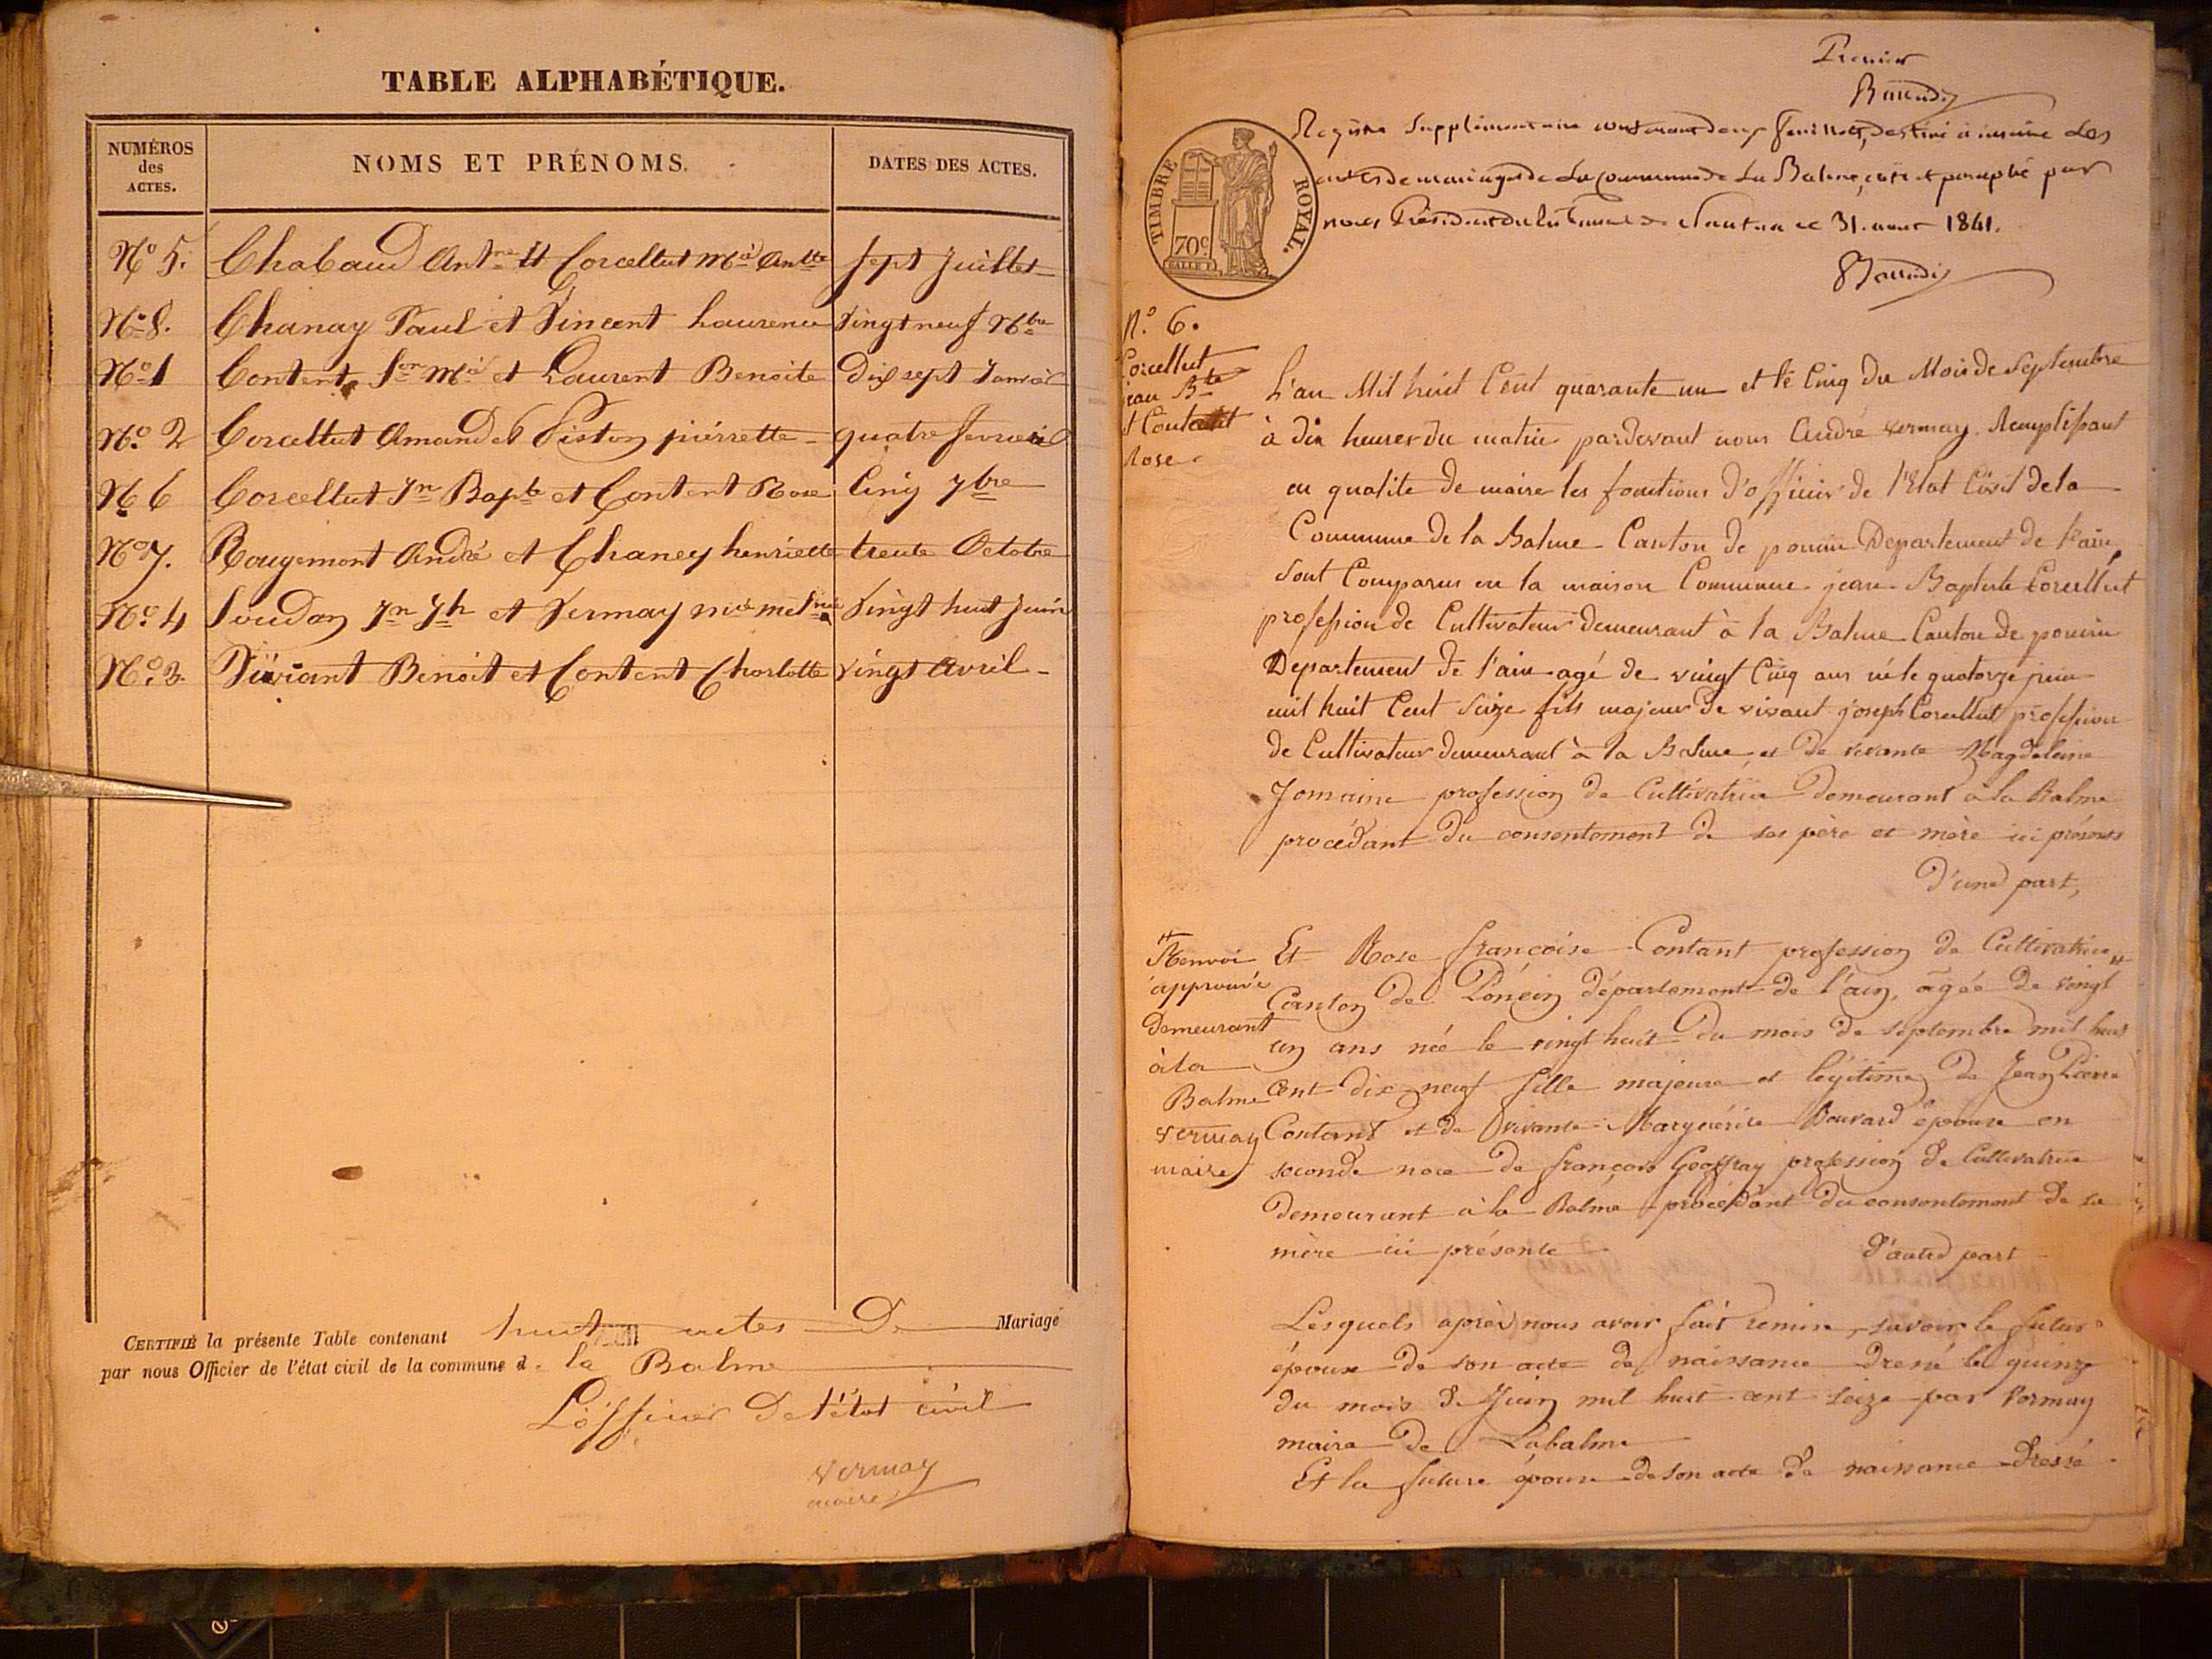 TABLE ALPHABÉTIQUE.
NUMÉROS
des
ACTES.
NOMS ET PRÉNOMS.
DATES DES ACTES.
No 5. Chabaud Antne et Corcellut Mie Antte sept Juillet
No 8. Chanay Paul et Vincent Laurence Vingt neuf 9bre
No 1 Content Mie et Laurent Benoite Dix sept Janvier
No 2 Corcellut Amand et Piston pierrette quatre fevrier
No 6 Corcellut Jn Bapte et Content Rose Cinq 7bre
No 7. Rougemont André et Chaney henriette trente Octobre
No 4 Soudon Jn Jh et Vermay Vingt huit Juin
No 3. Viviant Benoit et Content Charlotte Vingt Avril
CERTIFIÉ la présente Table contenant huit actes De Mariage
par nous Officier de l'état civil de la commune de la Balme
L'officier De l'état civil
Vermay
maire
Premier
Registre Supplémentaire contenant deux feuillets, destiné à inscrire les
actes de mariages de la commune de La Balme, coté et paraphé par
nous Président du tribunal de Nantua le 31. aout 1841.
TIMBRE ROYAL.
70c
No 6.
Corcellut
jean Bte
et Contant
Rose
L'an Mil huit Cent quarante un et le Cinq du Mois de Septembre
à dix heures du matin pardevant nous André Vermay Remplissant
en qualite de maire les fonctions d'officier de l'Etat Civil de la
Commune de la Balme Canton de poncin Departement de l'ain,
sont Comparus en la maison Commune jean Baptiste Corcellut
profession de Cultivateur demeurant à la Balme Canton de poncin
Departement de l'ain agé de vingt Cinq ans né le quatorze juin
mil huit Cent Seize fils majeur de vivant joseph Corcellut profession
de Cultivateur demeurant à la Balme, et De vivante Magdeleine
Jomaine profession de Cultivatrice demeurant à la Balme
procédant du consentement de ses père et mère ici présents
D'une part,
Renvoi
approuvé
Demeurant
à la
Balme
Vermay
maire
Et Rose françoise Contant profession de Cultivatrice
Canton de Poncin département de l'ain, âgée de vingt
un ans née le vingt huit du mois de septembre mil huit
cent dix-neuf fille majeure et légitime de Jean Pierre
Contant et de vivante Marguérite Bouvard épouse en
seconde noce de françois Geoffray profession de Cultivatrice
demeurant à la Balme procédant du consentement de sa
mère ici présente D'autre part
Lesquels après nous avoir fait remise, savoir le futur
époux de son acte de naissance dressé le quinze
du mois de Juin mil huit cent seize par Vermay
maire De Labalme
Et la future épouse de son acte de naissance dressé